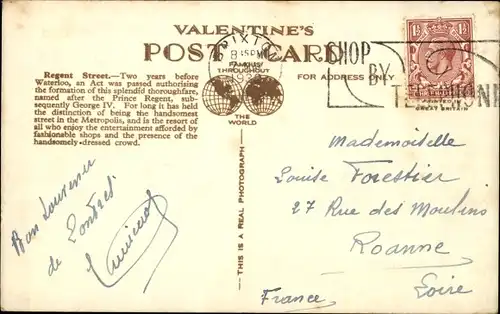 VALENTINE'S
POST CARD
FAMOUS
THROUGHOUT
THE
WORLD
FOR ADDRESS ONLY
BRIXTON
8:15 PM
SHOP
BY
TELEPHONE
1½ 1½
PRINTED IN
GREAT BRITAIN
Regent Street.—Two years before
Waterloo, an Act was passed authorising
the formation of this splendid thoroughfare,
named after the Prince Regent, sub-
sequently George IV. For long it has held
the distinction of being the handsomest
street in the Metropolis, and is the resort of
all who enjoy the entertainment afforded by
fashionable shops and the presence of the
handsomely-dressed crowd.
— THIS IS A REAL PHOTOGRAPH —
Bon Souvenir
de Londres
Mademoiselle
Louise Forestier
27 Rue des Moulins
Roanne
Loire
France